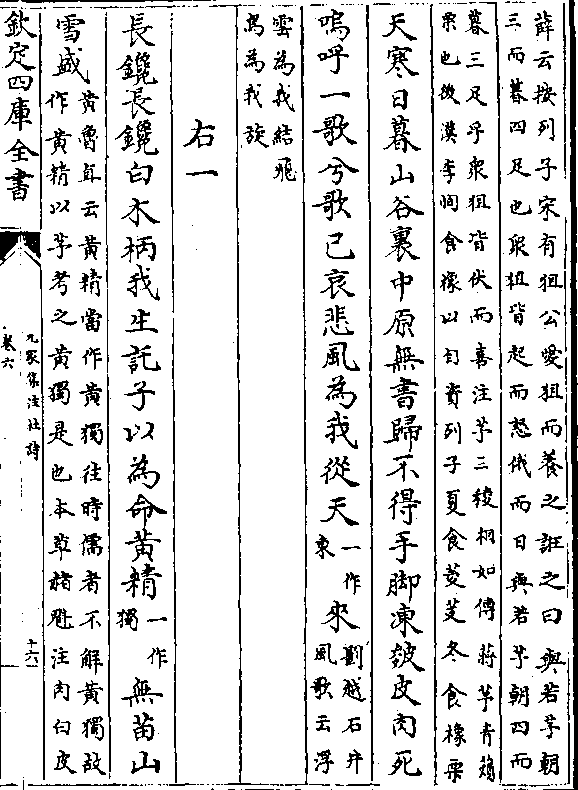 薛云按列子宋有狙公愛狙而養之誑之曰與若芧朝
三而暮四足也衆狙皆起而怒俄而曰與若芧朝四而
暮三足乎衆狙皆伏而喜注芧三稜桐如傅蔣芧青薠
栗也後漢李恂食橡以自資列子夏食菱芰冬食橡栗
天寒日暮山谷裏中原無書歸不得手脚凍皴皮肉死
嗚呼一歌兮歌已哀悲風為我從天一作東來劉越石扶風歌云浮
雲為我結飛
鳥為我旋
右一
長鑱長鑱白木柄我生託子以為命黃精一作獨無苗山
雪盛黃魯直云黃精當作黃獨往時儒者不解黃獨故
作黃精以芧考之黃獨是也本草赭魁注肉白皮
欽定四庫全書
九家集注杜詩
卷六
十六